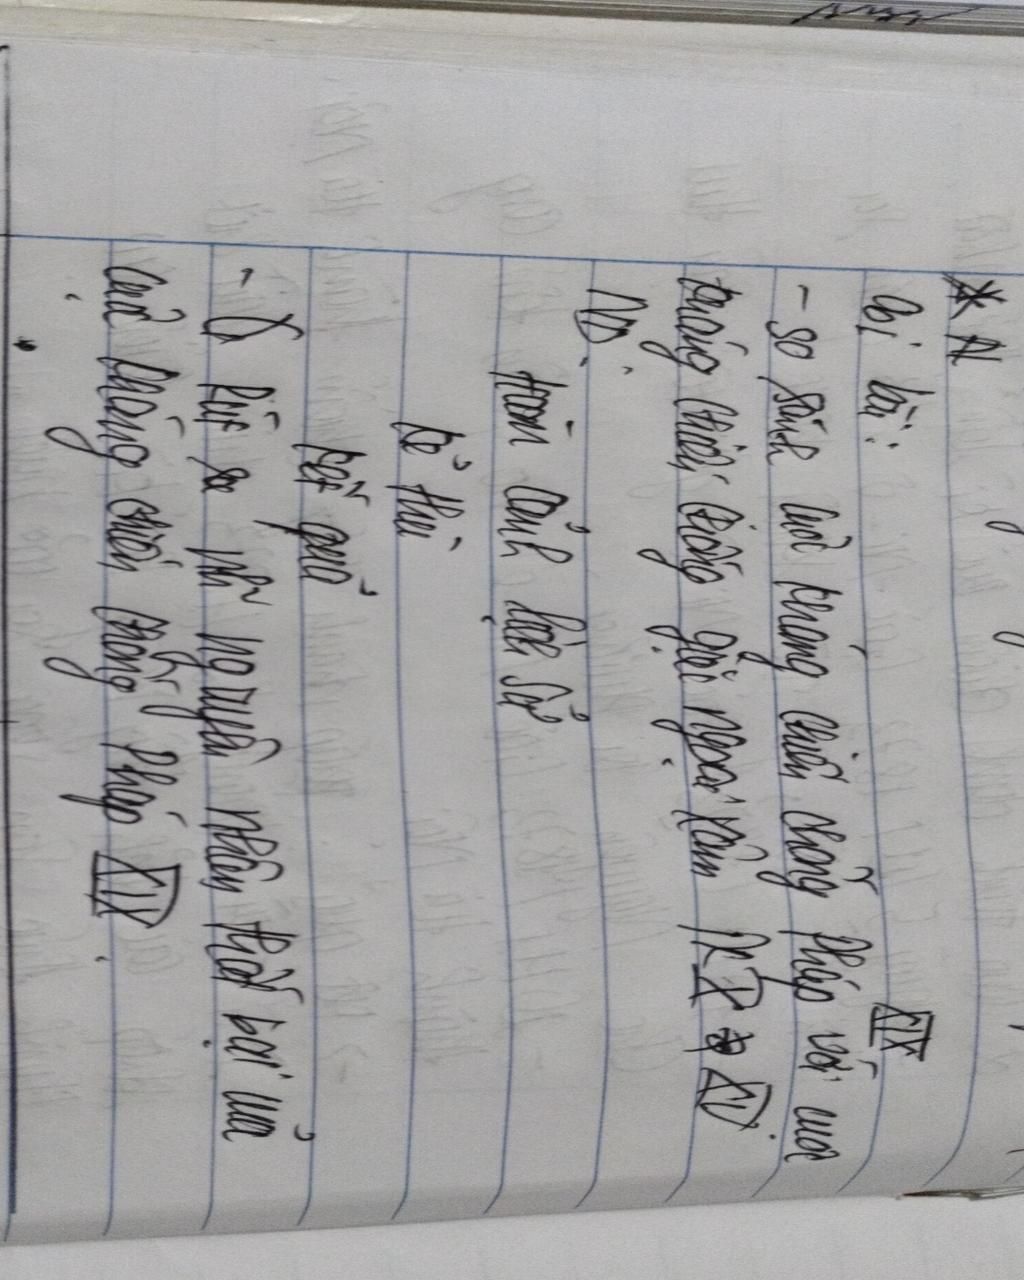 * N
ôn bài:
XIX
- so sánh cuộc kháng chiến chống Pháp với cuộc
kháng chiến chống giặc ngoại xâm TK X → XV
ND:
hoàn cảnh lịch sử
kẻ thù
kết quả
- lí nguyên nhân thất bại của
cuộc kháng chiến chống Pháp XIX.